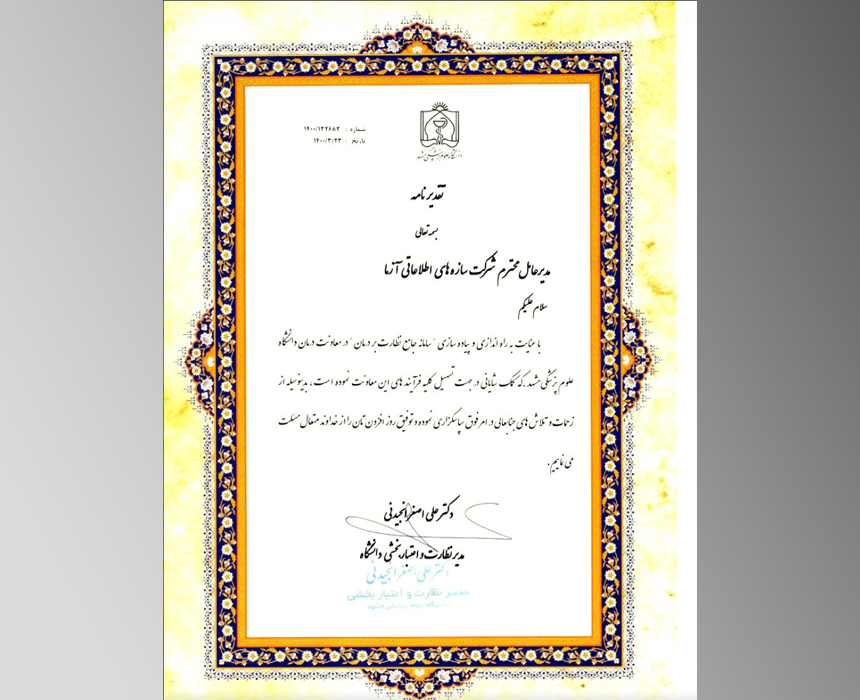 شماره : ۱۴۰۰/۱۳۲۶۸۳
تاریخ : ۱۴۰۰/۳/۲۳
دانشگاه علوم پزشکی مشهد
تقدیر نامه
بسمه تعالی
مدیرعامل محترم شرکت سازه های اطلاعاتی آزما
سلام علیکم
با عنایت به راه اندازی و پیاده سازی "سامانه جامع نظارت بر درمان" در معاونت درمان دانشگاه
علوم پزشکی مشهد ,که کمک شایانی در جهت تسهیل کلیه فرآیند های این معاونت نموده است ، بدینوسیله از
زحمات و تلاش های جنابعالی در امر فوق سپاسگزاری نموده و توفیق روز افزون تان را از خداوند متعال مسئلت
می نماییم.
دکتر علی اصغر انجیدنی
مدیر نظارت و اعتبار بخشی دانشگاه
دکتر علی اصغر انجیدنی
مدیر نظارت و اعتبار بخشی
دانشگاه علوم پزشکی مشهد